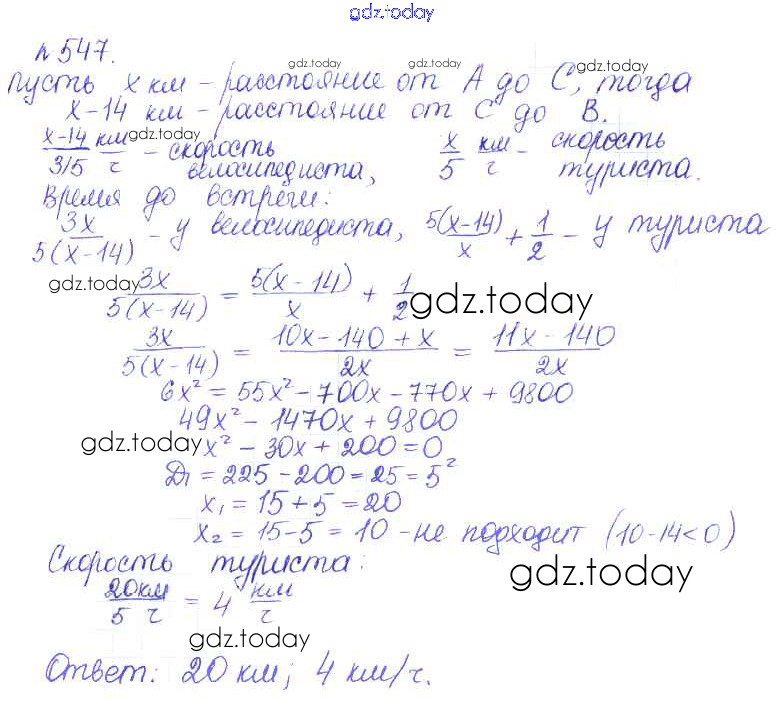 gdz.today
№ 547.
gdz.today
gdz.today
пусть x км – расстояние от A до C, тогда
x-14 км – расстояние от C до B.
gdz.today
x-14/3/5 км/ч – скорость велосипедиста, x/5 км/ч – скорость туриста.
gdz.today
Время до встречи:
3x/5(x-14) – у велосипедиста, 5(x-14)/x + 1/2 – у туриста
gdz.today
3x/5(x-14) = 5(x-14)/x + 1/2
gdz.today
3x/5(x-14) = 10x-140+x/2x = 11x-140/2x
6x² = 55x² - 700x - 770x + 9800
49x² - 1470x + 9800
gdz.today
x² - 30x + 200 = 0
D₁ = 225 - 200 = 25 = 5²
x₁ = 15 + 5 = 20
x₂ = 15 - 5 = 10 - не подходит (10-14<0)
Скорость туриста:
gdz.today
20км/5 ч = 4 км/ч
gdz.today
Ответ: 20 км; 4 км/ч.